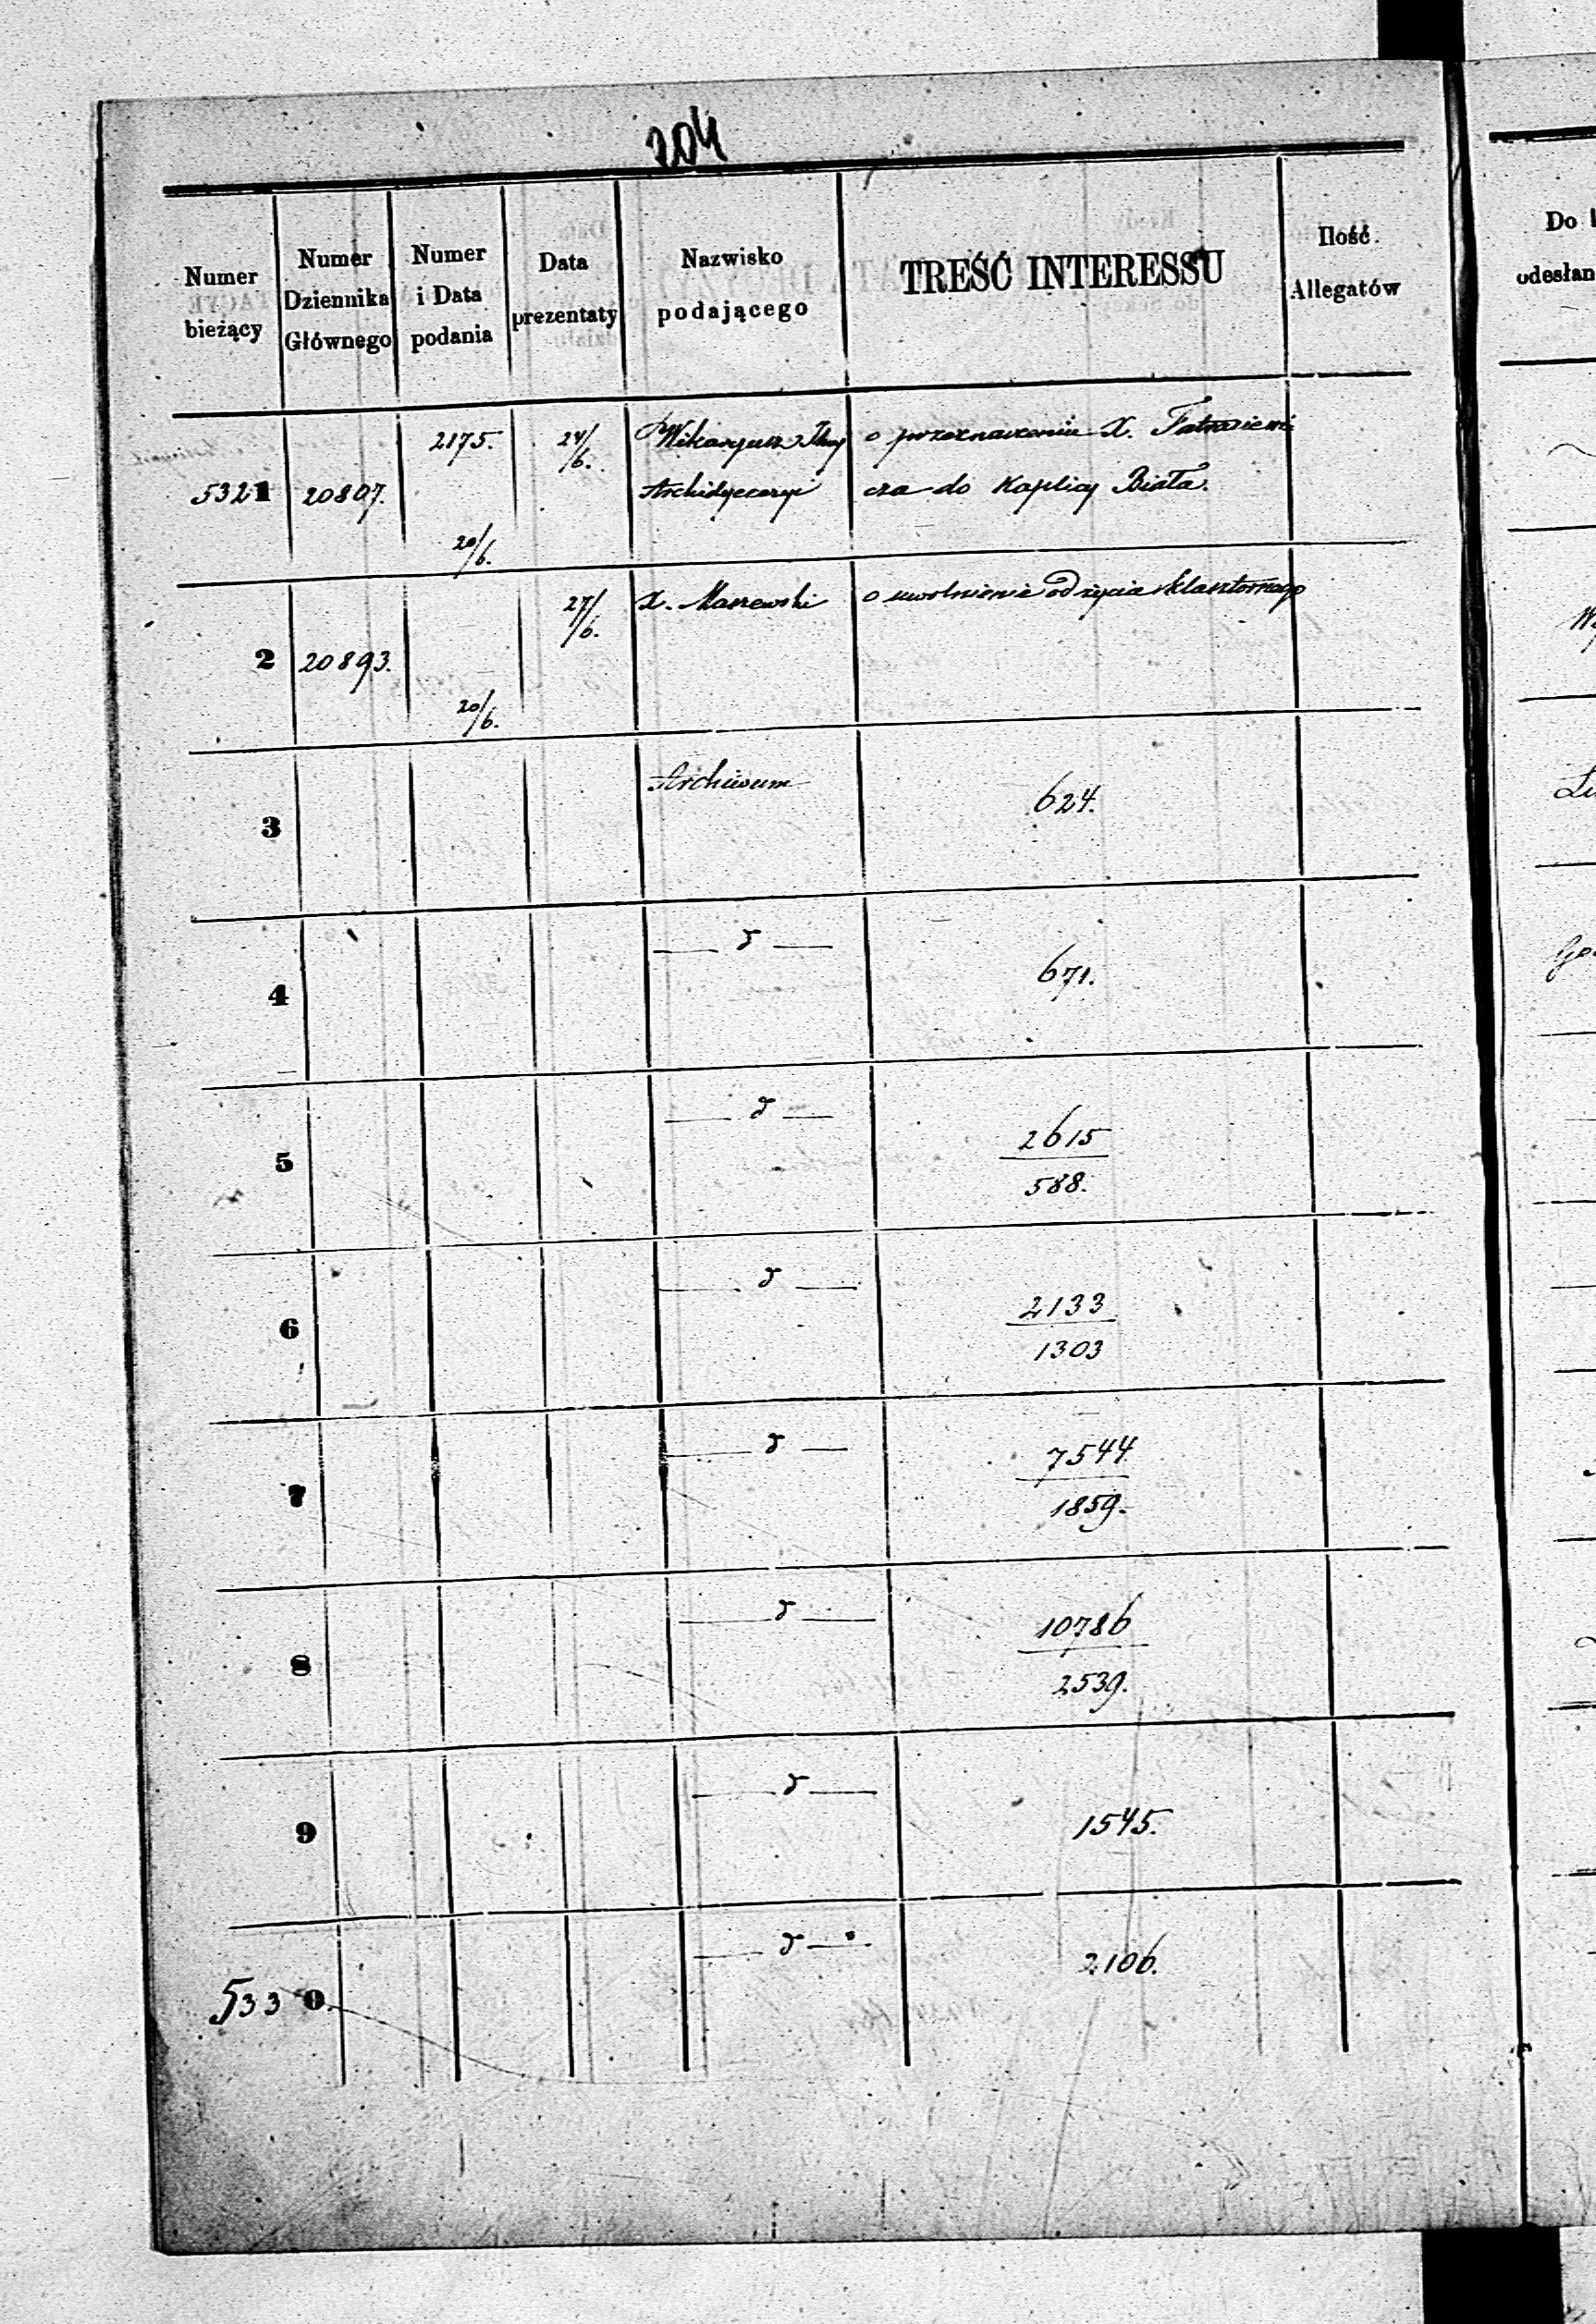 204
Numer bieżący
Numer Dziennika Głównego
Numer i Data podania
Data prezentaty
Nazwisko podającego
TREŚĆ INTERESSU
Ilość Allegatów
Do
odesłan
5321 20897. 2175. 20/6. 24/6. Wikaryusz o przeznaczenie X.
Archidyecezyi cza do Kaplicy Biała.
2 20893. 20/6. 27/6. X. Maszewski o uwolnienie od życia klasztornego
3 Archiwum 624.
4 — d — 671.
5 — d — 2615
588.
6 — d — 2133
1303
7 — d — 7544
1859.
8 — d — 10786
2539.
9 — d — 1545.
5330 — d — 2106.